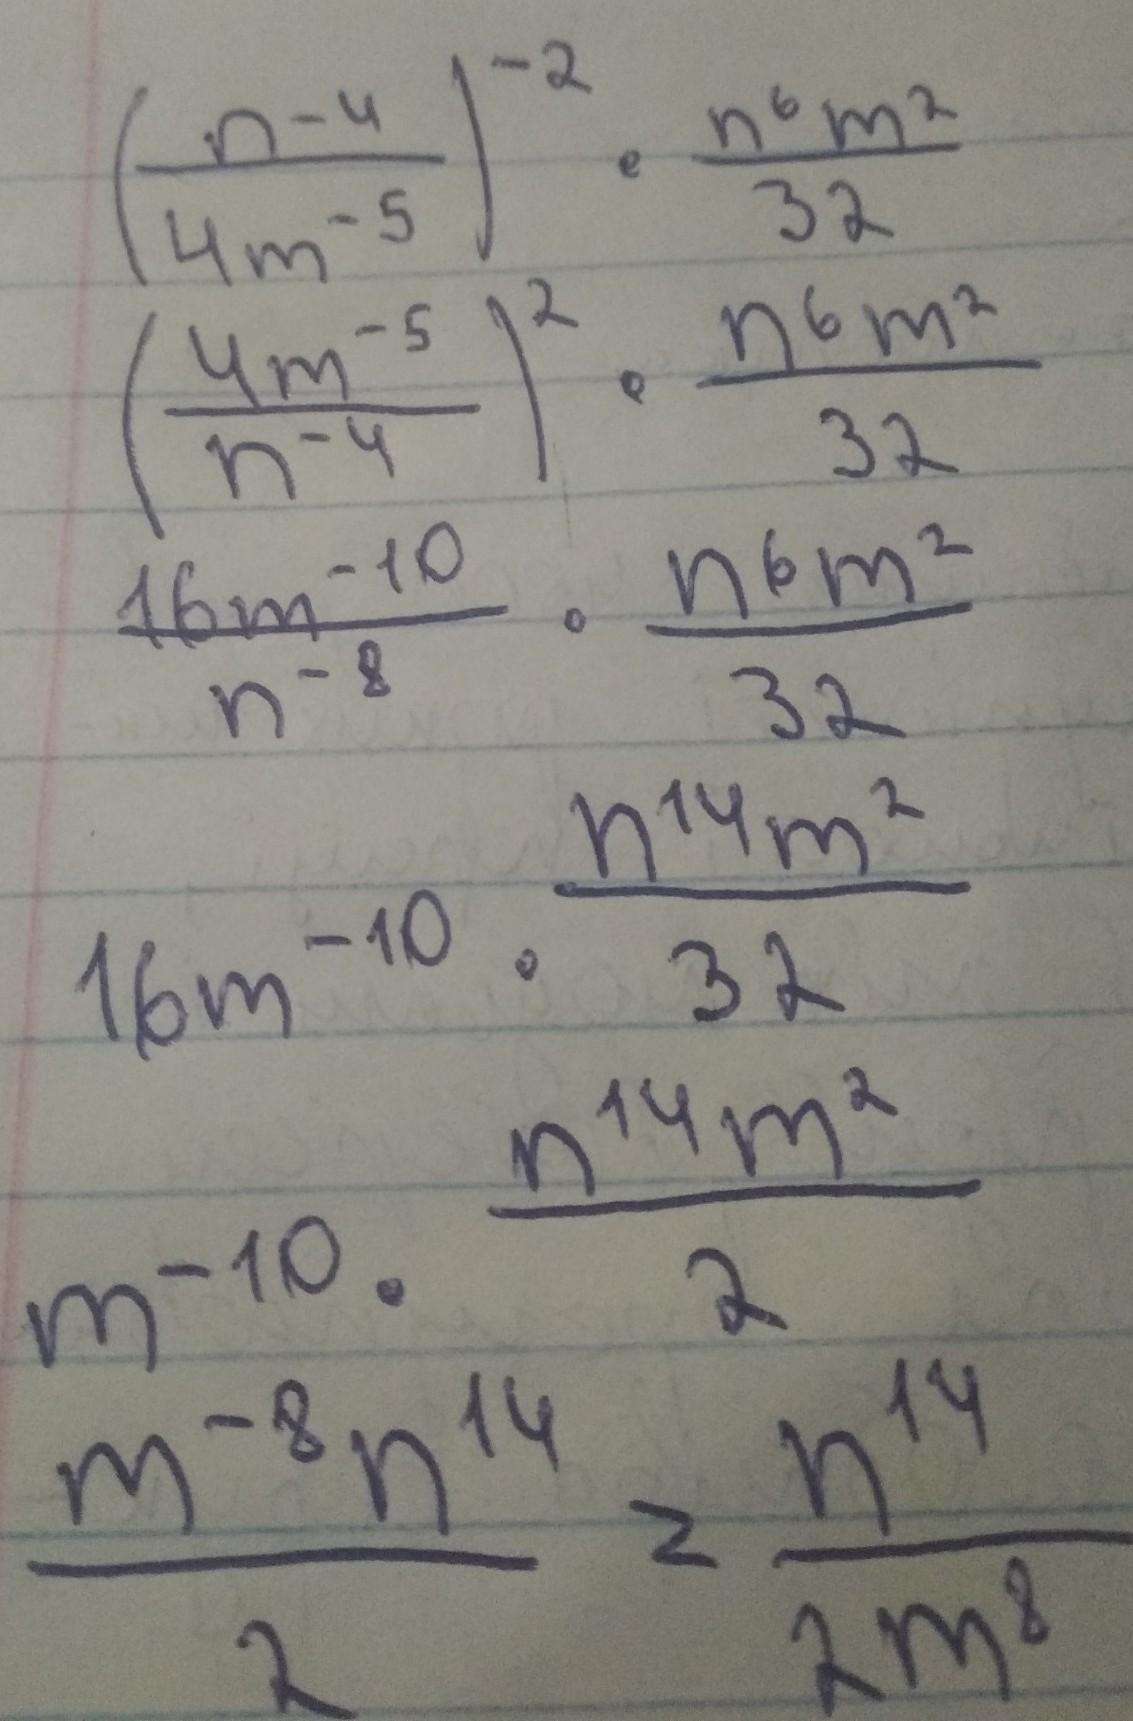 (n⁻⁴/4m⁻⁵)⁻² · n⁶m²/32
(4m⁻⁵/n⁻⁴)² · n⁶m²/32
16m⁻¹⁰/n⁻⁸ · n⁶m²/32
16m⁻¹⁰ · n¹⁴m²/32
m⁻¹⁰ · n¹⁴m²/2
m⁻⁸n¹⁴/2 = n¹⁴/2m⁸